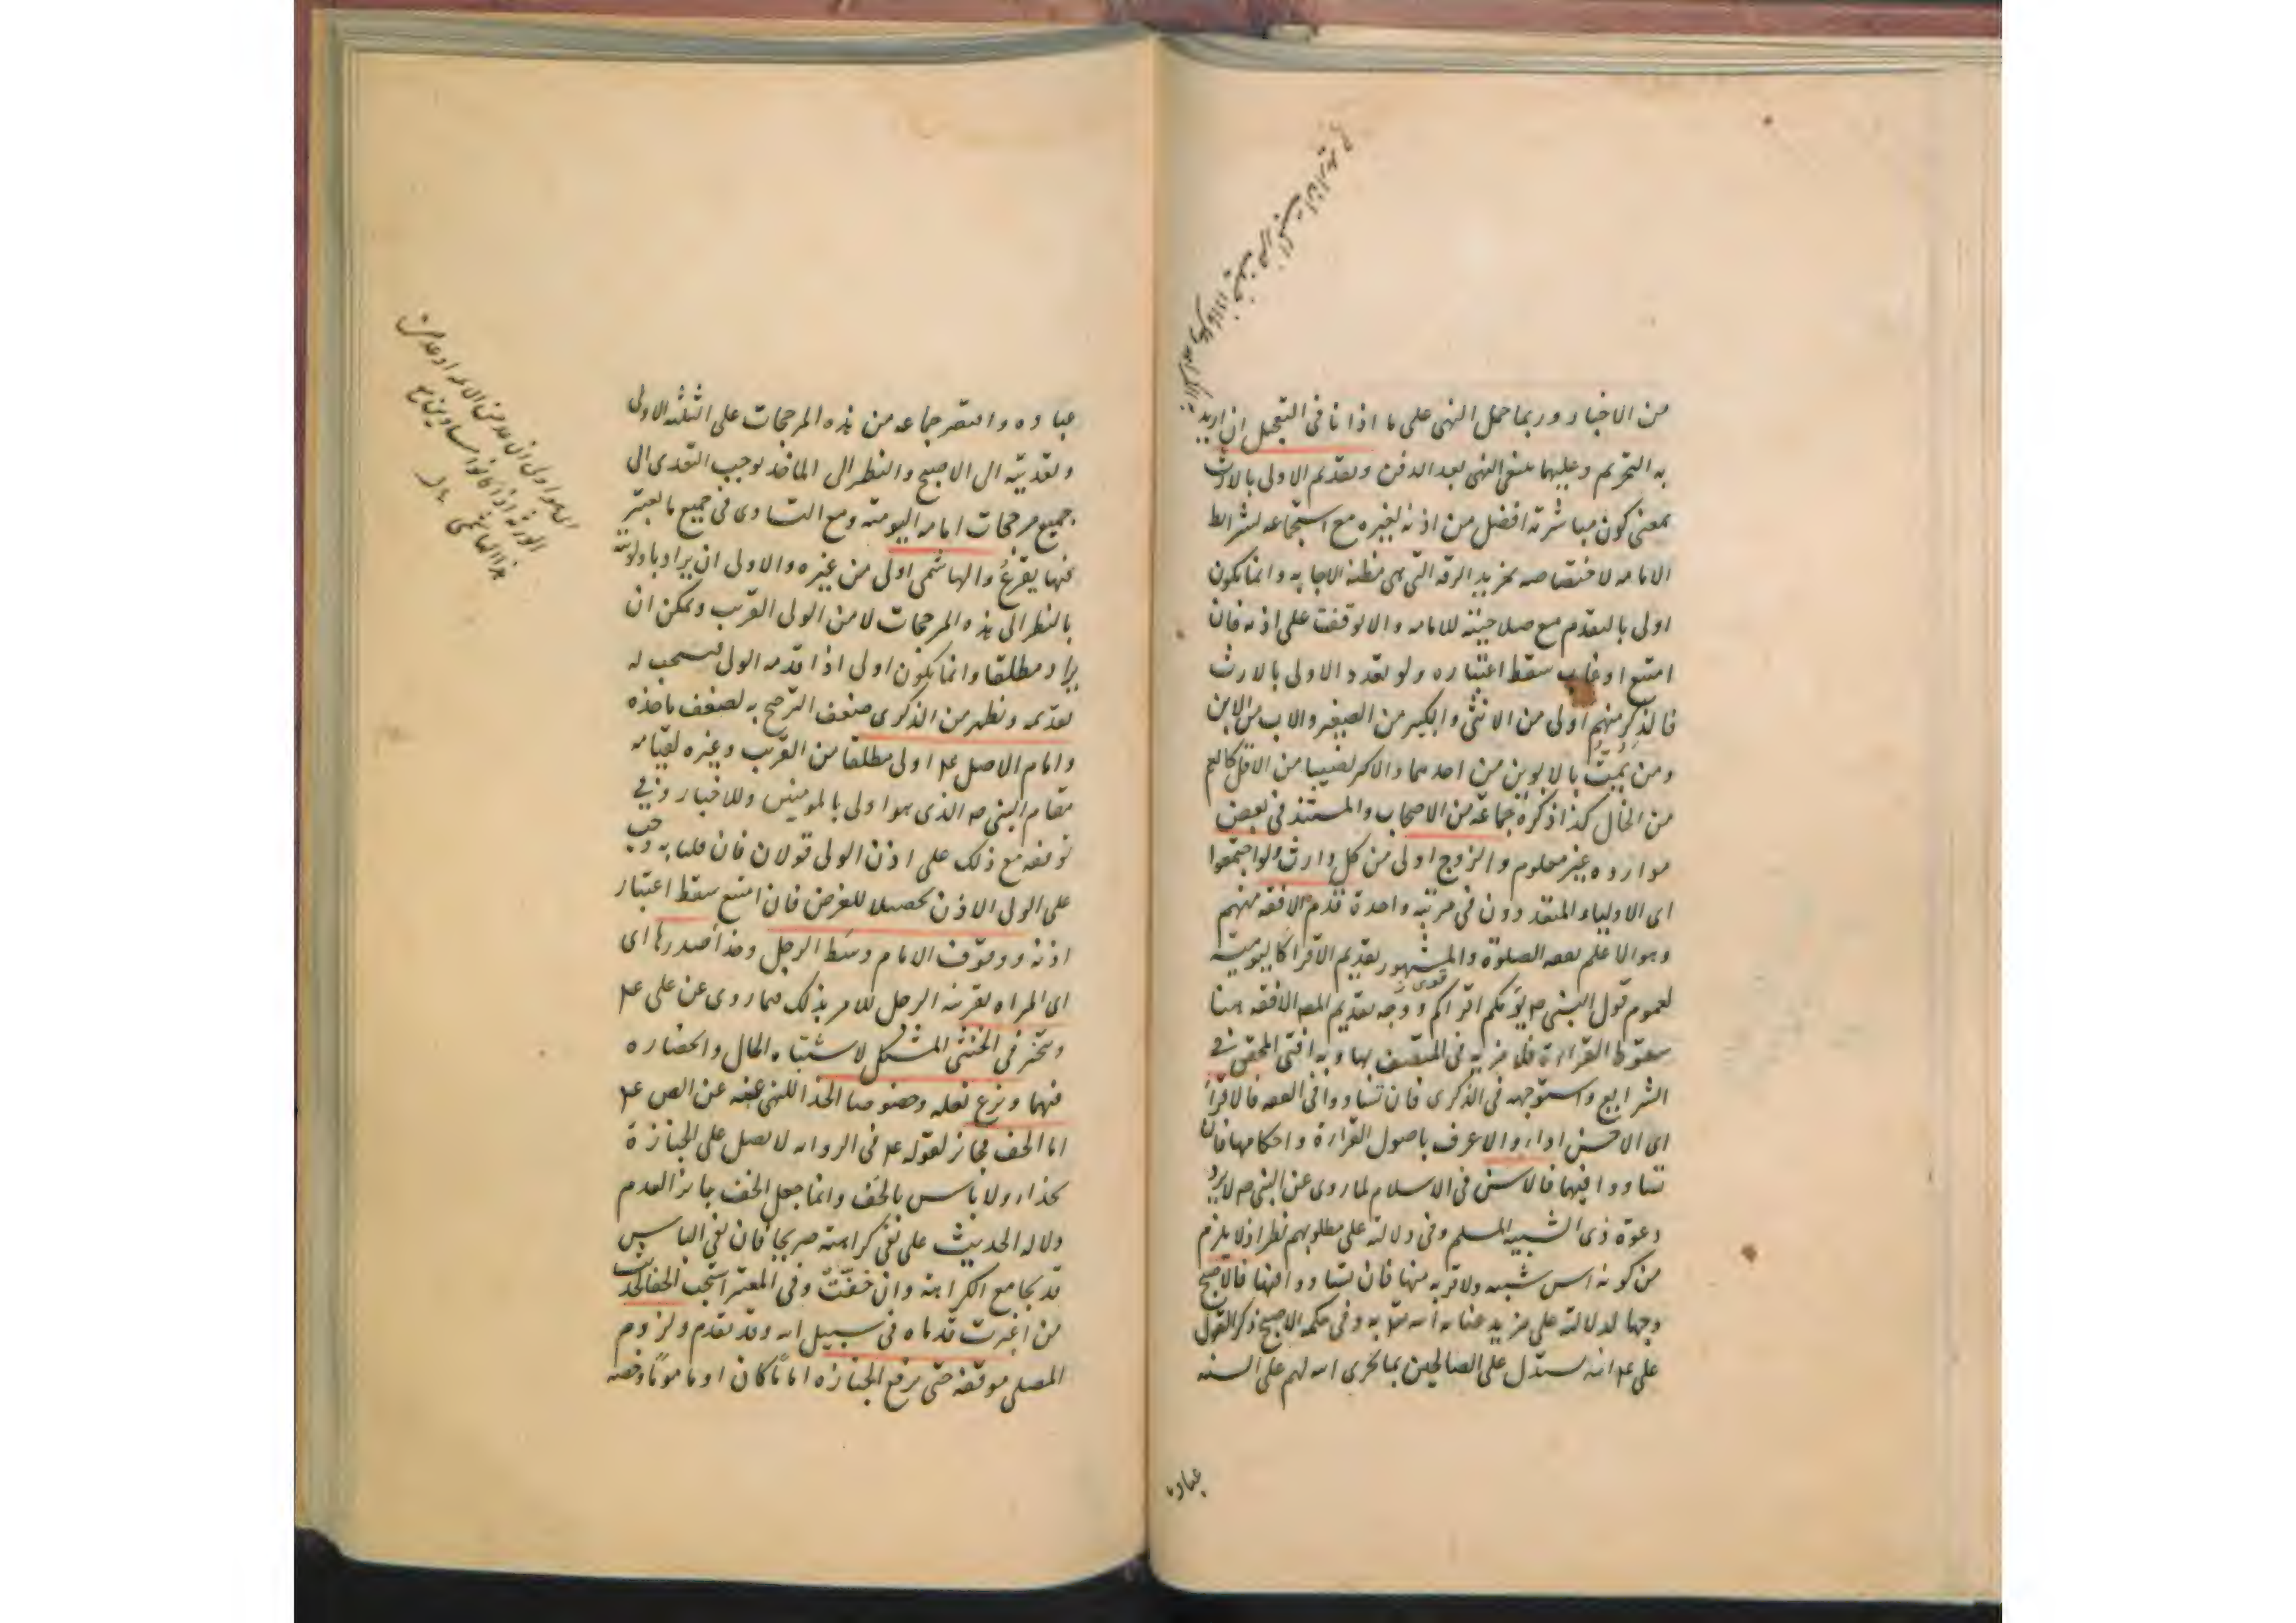 من الاخبار وربما حمل النهى على ما اذا نافى التعجيل ان اريد
به التحريم وعليهما ينتفى النهى بعد الدفن وتقديم الاولى بالارث
بمعنى كون مباشرته افضل من اذنه لغيره مع استجماعه لشرائط
الامامه لاختصاصه بمزيد الرقه التى هى مظنه الاجابه وانما يكون
اولى بالتقدم مع صلاحيته للامامه والا توقفت على اذنه فان
امتنع او غاب سقط اعتباره ولو تعدد الاولى بالارث
فالذكر منهم اولى من الانثى والكبير من الصغير والاب من الابن
ومن يمت بالابوين من احدهما والاكثر نصيبا من الاقل كالعم
من الخال كذا ذكره جماعة من الاصحاب والمستند فى بعض
موارده غير معلوم والزوج اولى من كل وارث ولو اجتمعوا
اى الاولياء المتعددون فى مرتبه واحدة قدم الافقه منهم
وهو الاعلم بفقه الصلوة والمشهور تقديم الاقرا كاليوميّة
لعموم قول النبى ص يؤمكم اقراكم ووجه تقديم المص الافقه هنا
سقوط القراءة فلا مزيه فى المتصف بها وبه افتى المحقق فى
الشرايع واستوجهه فى الذكرى فان تساووا فى الفقه فالاقرأ
اى الاحسن اداء والاعرف باصول القراءة واحكامها فان
تساووا فيها فالاسن فى الاسلام لما روى عن النبى ص لا يرد
دعوة ذى الشيبه المسلم وفى دلالته على مطلوبهم نظر اذ لا يلزم
من كونه اسن شيبه ولا قربه منها فان تساووا فيها فالاصبح
وجها لدلالته على مزيد عناية الله تع به وفى حكمه الاصبح ذكرا لقول
على عم انه يستدل على الصالحين بما يجرى الله لهم على السنه
عباده
عباده واقتصر جماعه من هذه المرجحات على الثلثه الاولى
وتعديته الى الاصبح والنظر الى الماخذ يوجب التعدى الى
جميع مرجحات امامه اليوميّه ومع التساوى فى جميع ما يعتبر
منها يقرع والهاشمى اولى من غيره والاولى ان يراد باولويته
بالنظر الى هذه المرجحات لا من الولى القريب ويمكن ان
يراد مطلقا وانما يكون اولى اذا قدمه الولى فيستحب له
تقديمه ويظهر من الذكرى ضعف الترجيح به لضعف ماخذه
وامام الاصل عم اولى مطلقا من القريب وغيره لقيامه
مقام النبى ص الذى هو اولى بالمومنين وللاخبار وفى
توقفه مع ذلك على اذن الولى قولان فان قلنا به وجب
على الولى الاذن تحصيلا للغرض فان امتنع سقط اعتبار
اذنه ووقوف الامام وسط الرجل وحذا صدرها اى
اى المراه بقرينه الرجل للامر بذلك فيما روى عن على عم
ويتخير فى الخنثى المشكل لاشتباه الحال وانحصاره
فيهما ونزع نعله وخصوصا الحذا للنهى عنه عن الص عم
اما الخف فجائز لقوله عم فى الروايه لا تصل على الجنازة
بحذاء ولا باس بالخف وانما جعل الخف جائزا لعدم
دلاله الحديث على نفى كراهته صريحا فان نفى الباس
قد يجامع الكراهة وان خفّتْ وفى المعتبر استحب الحفا لحديث
من اغبرت قدماه فى سبيل الله وقد تقدم ولزوم
المصلى موقفه حتى ترفع الجنازه اماما كان او ماموما وخصه